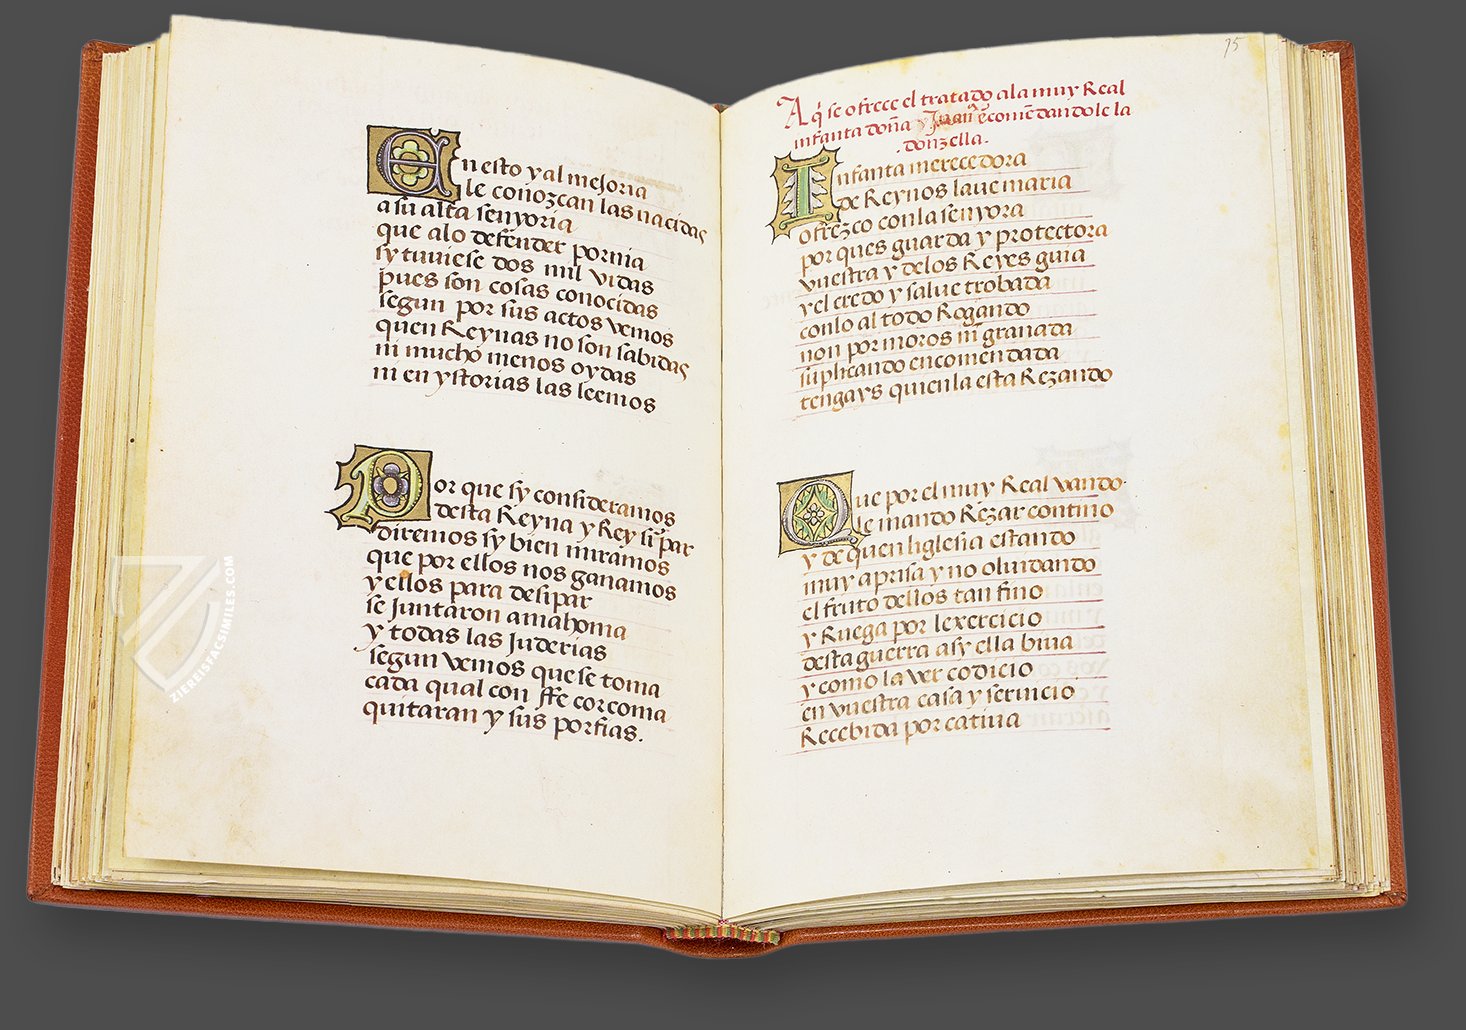 En esto y al mejoria
le conozcan las nacidas
a su alta senyoria
que alo defender pornia
sy tuviese dos mil vidas
pues son cosas conocidas
segun por sus actos vemos
quen Reynas no son sabidas
ni mucho menos oydas
ni en ystorias las leemos
Por que sy consideramos
desta Reyna y Rey si par
diremos sy bien miramos
que por ellos nos ganamos
y ellos para desipar
se juntaron a mahoma
y todas las Juderias
segun vemos que se toma
cada qual con ffe corcoma
quitaran y sus porfias.
75
Aq̃ se ofrece el tratado ala muy Real
infanta doña Juana ẽcomẽdandole la
.donzella.
Infanta merecedora
de Reynos laue maria
ofrezco con la senyora
por ques guarda y protectora
vuestra y delos Reyes guia
y el credo y salue trobada
con lo al todo Rogando
non por moros nĩ granada
suplicando encomendada
tengays quien la esta Rezando
Que por el muy Real vando
le mando Rezar contino
y de quen liglesia estando
muy aprisa y no oluidando
el fruto dellos tan fino
y Ruega por lexercicio
desta guerra asy ella biua
y como la ver codicio
en vuestra casa y seruicio
Recebida por catiua
ZIEREISFACSIMILES.COM